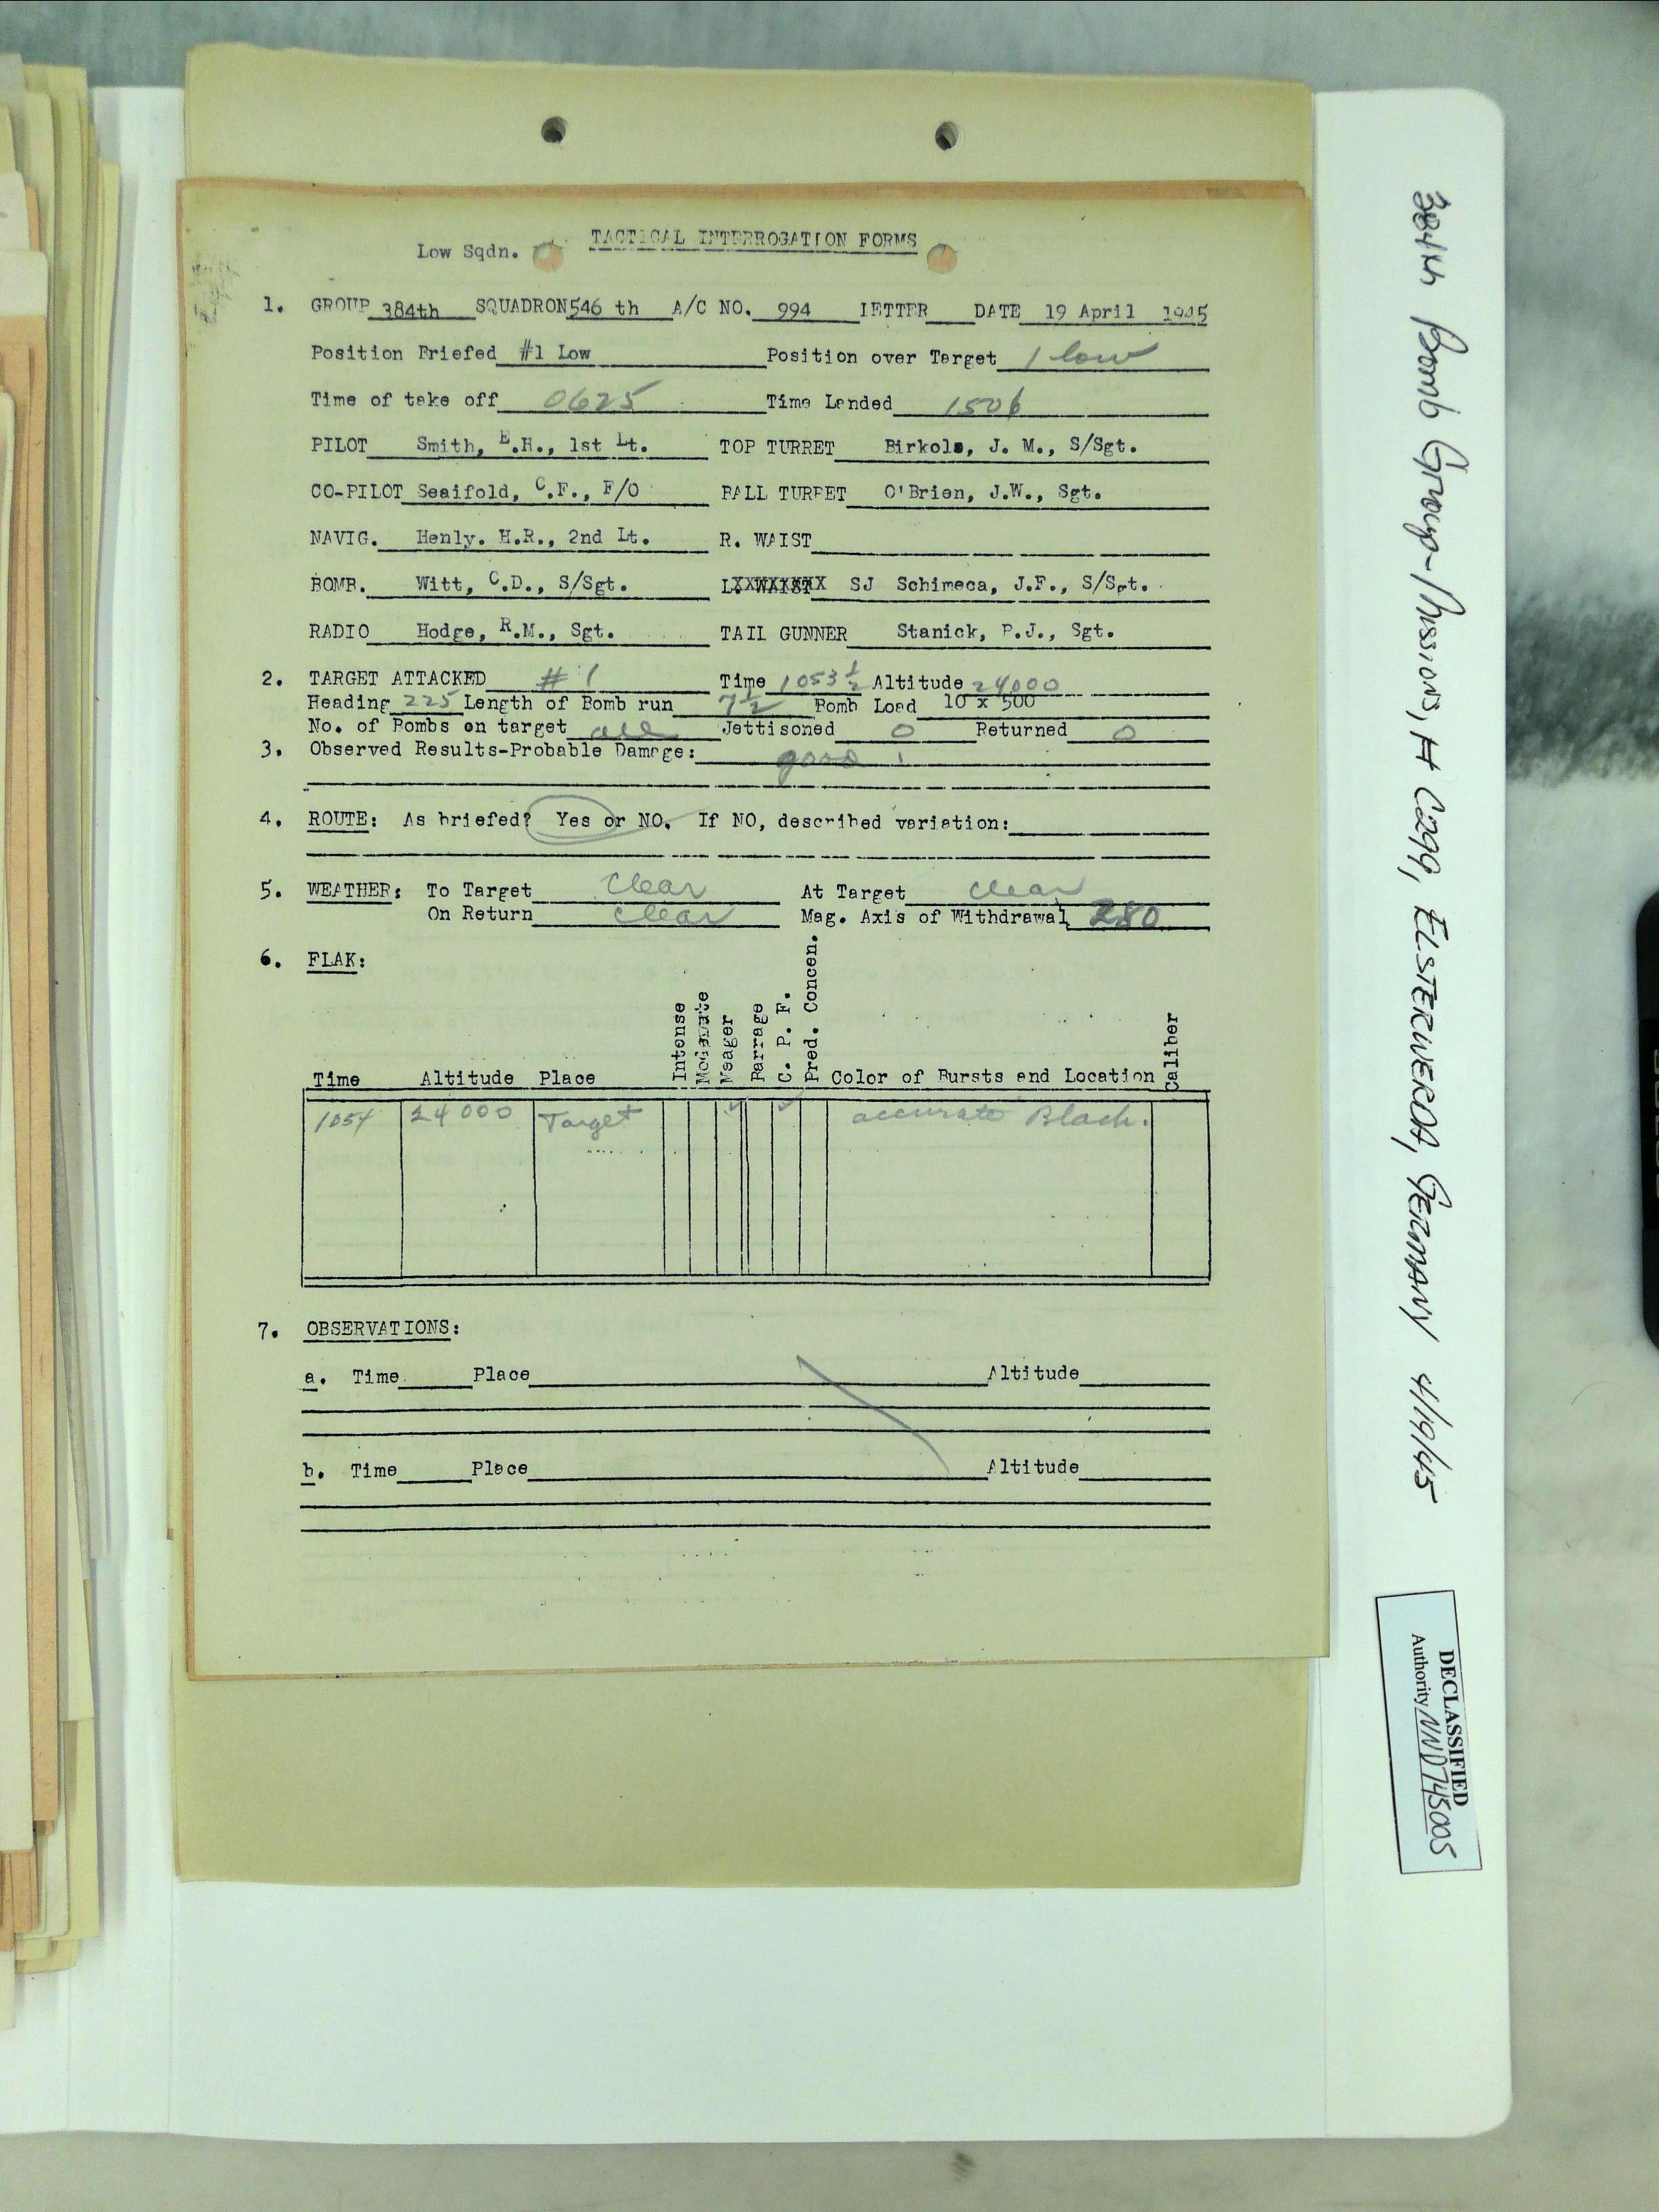 TACTICAL INTERROGATION FORMS
Low Sqdn.
1. GROUP 384th SQUADRON 546 th A/C NO. 994 LETTER DATE 19 April 1945
Position Briefed #1 Low Position over Target 1 low
Time of take off 0625 Time Landed 1506
PILOT Smith, E.H., 1st Lt. TOP TURRET Birkols, J. M., S/Sgt.
CO-PILOT Seaifold, C.F., F/O BALL TURRET O'Brien, J.W., Sgt.
NAVIG. Henly. H.R., 2nd Lt. R. WAIST
BOMB. Witt, C.D., S/Sgt. L. WAIST SJ Schimeca, J.F., S/Sgt.
RADIO Hodge, R.M., Sgt. TAIL GUNNER Stanick, P.J., Sgt.
2. TARGET ATTACKED # 1 Time 1053 1/2 Altitude 24000
Heading 225 Length of Bomb run 7 1/2 Bomb Load 10 x 500
No. of Bombs on target all Jettisoned 0 Returned 0
3. Observed Results-Probable Damage: good
4. ROUTE: As briefed? Yes or NO. If NO, described variation:
5. WEATHER: To Target clear At Target clear
On Return clear Mag. Axis of Withdrawal 280
6. FLAK:
Time Altitude Place Intense Moderate Meager Barrage C. P. F. Pred. Concen. Color of Bursts and Location Caliber
1054 24000 Target ✓ ✓ accurate Black.
7. OBSERVATIONS:
a. Time Place Altitude
b. Time Place Altitude
384th Bomb Group-Missions, # C299, ELSTERWERDA, GERMANY 4/19/45
DECLASSIFIED
Authority NND745005